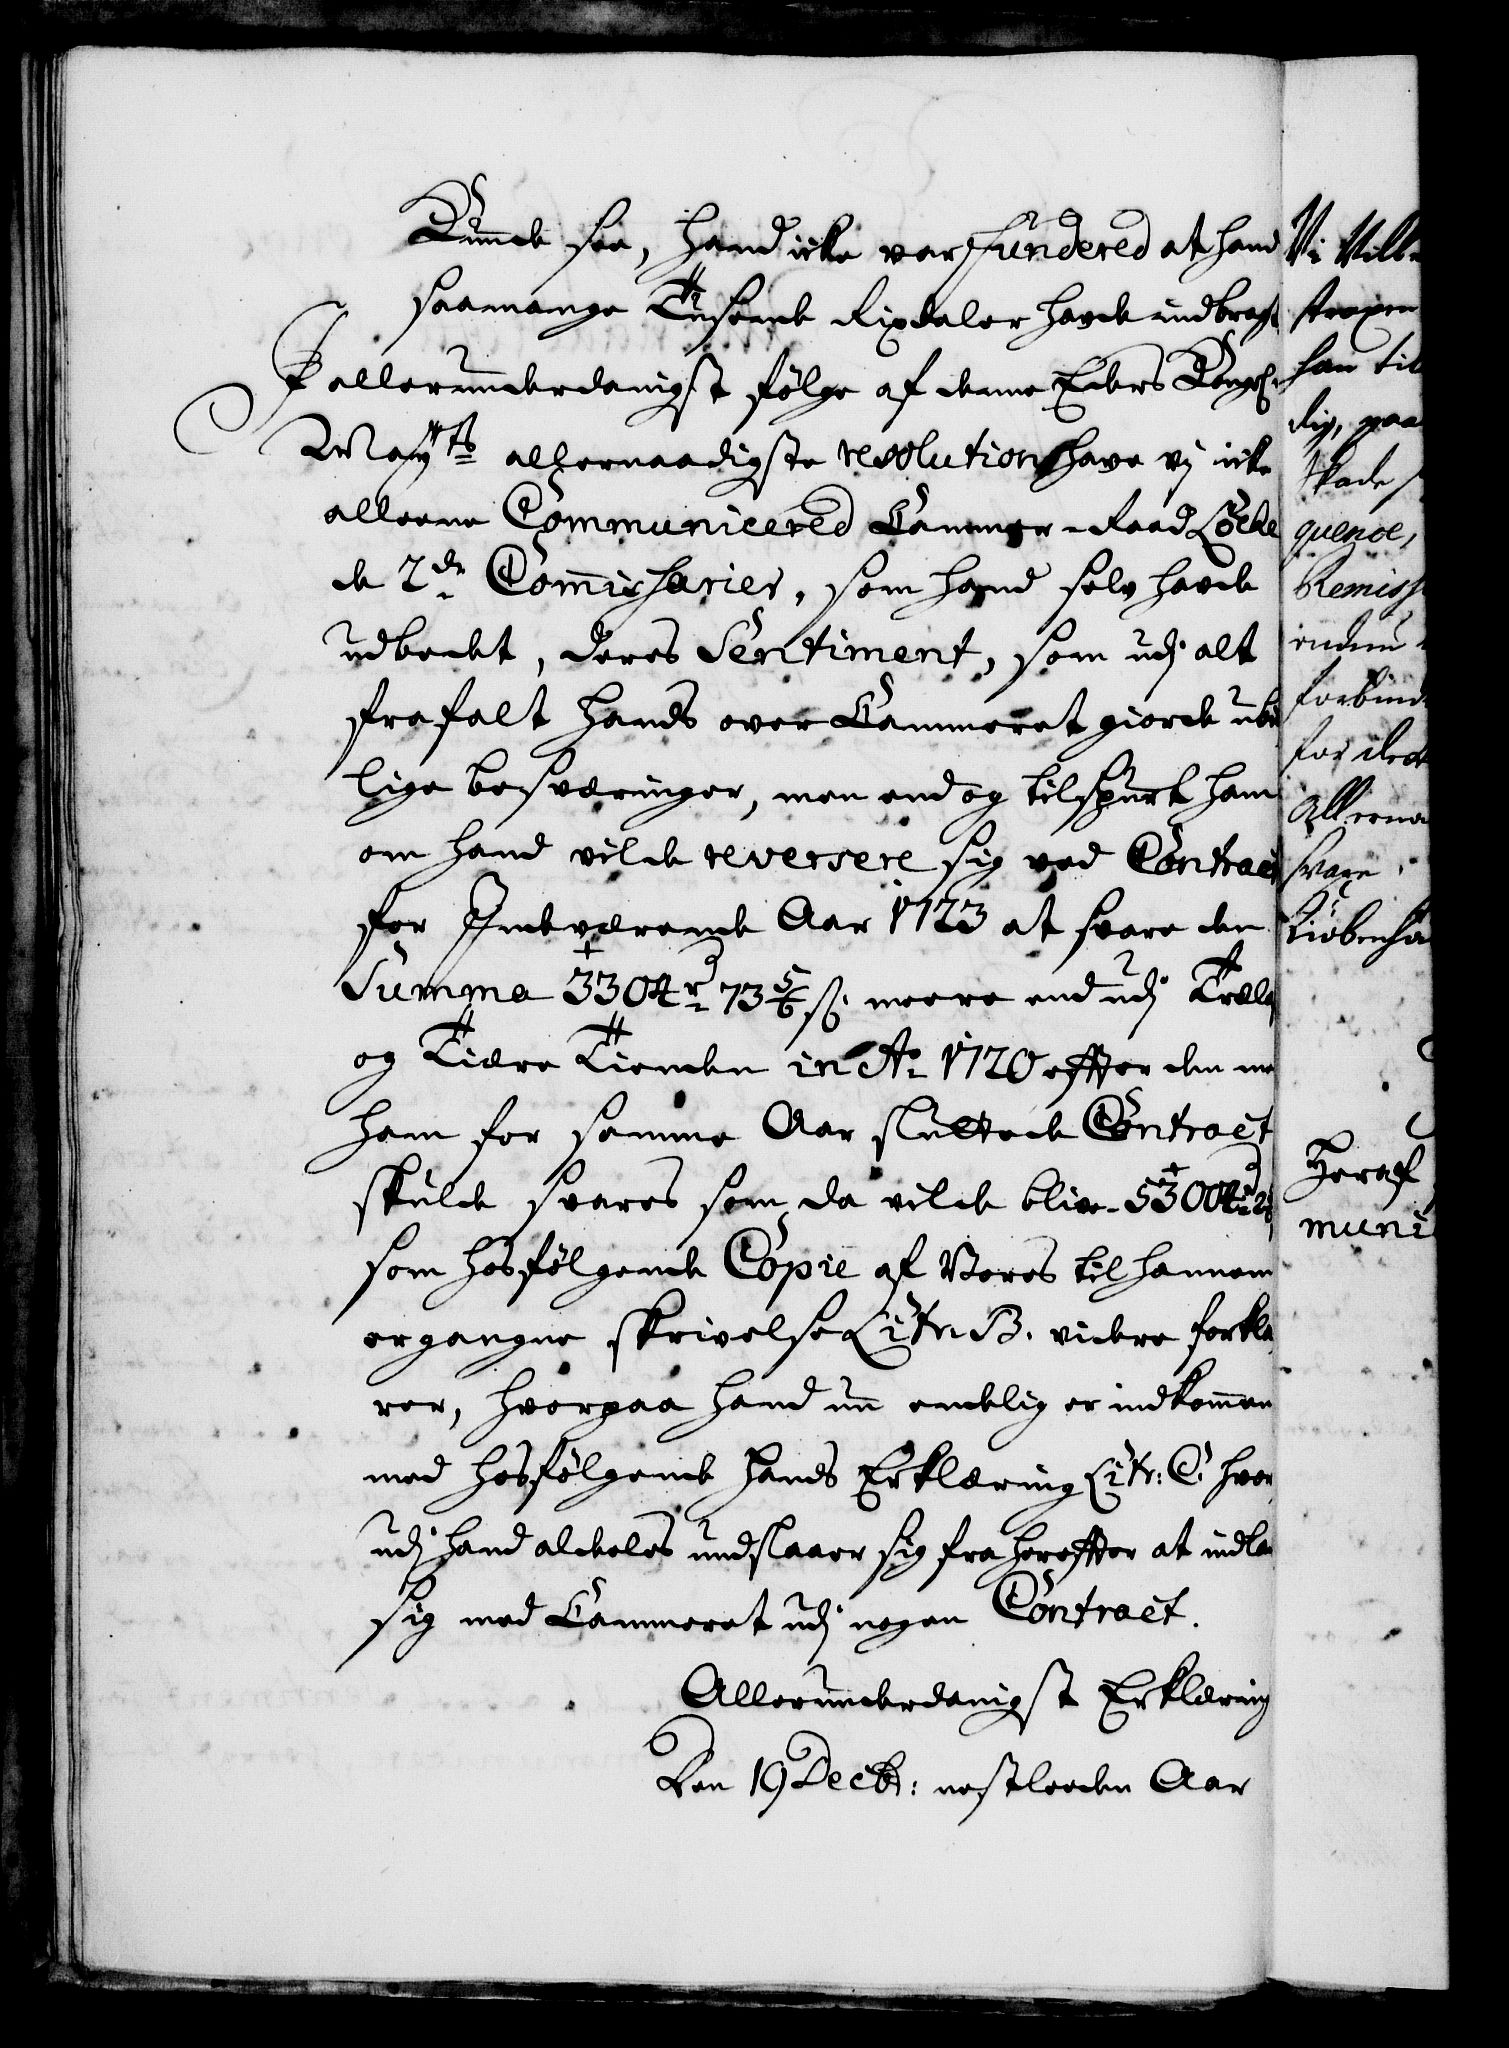 Kunde see, hand icke var funderet at hand
saamange Tusende Rixdaler hafde indbragt
I allerunderdanigst følge af denne Eders Kongl:
May:ts allernaadigste resolution have vj icke
alleene Communicered Cammer-Raad Löcke
de 2de Commissarier, som hand selv hafde
udbedt, deres Sentiment, som udj alt
frafalt hands over Cammeret giorde ubil
lige besværinger, men end og tilspurt ham
om hand vilde reversere sig ved Contract
for Indeværende Aar 1723 at svare den
Summa 3304 rd 73 5/6 ß. meere end udj Trælast
og Tiære Tienden in Ao 1720 effter den med
ham for samme Aar sluttede Contract
skulde svares som da vilde blive 5300
som hosfølgende Copie af Vores til hannem
ergangne skrivelse Litr. B. videre forkla
rer, hvorpaa hand nu endelig er indkommen
med hosfølgende hands Erklæring Litr: C. hvor
udj hand aldeles undslaaer sig fra hereffter at indlade
sig med Cammeret udj nogen Contract.
Allerunderdanigst Erklæring
Den 19 Decbr: nestleeden Aar
Vi Ville
straxen
han til
dig, paa
skade
quence,
Remiss
endnu
forbind
for det
Allerna
svare
Kiøbenha
Heraf
muni